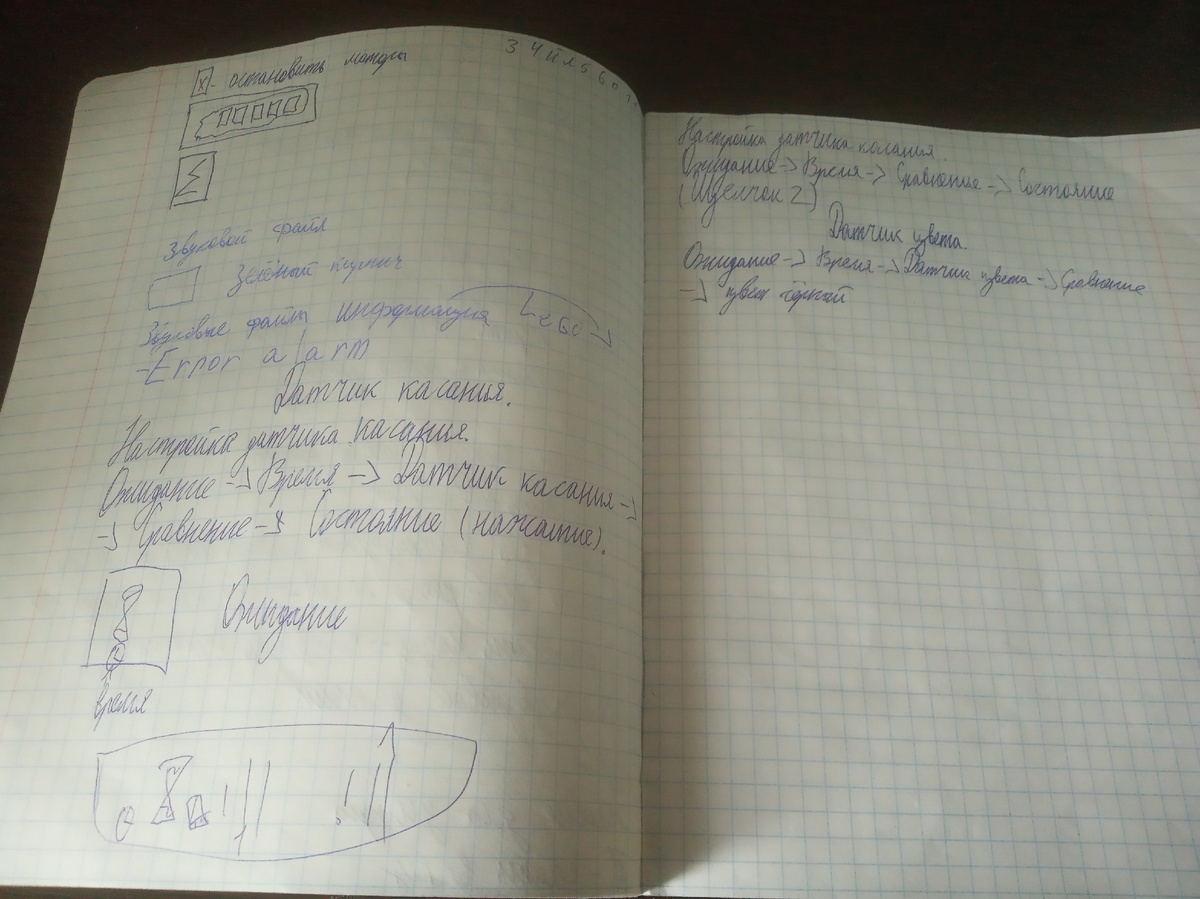 x - остановить моторы
Звуковой файл
Зелёный кирпич
Звуковые файлы информация Lego →
- Error alarm
Датчик касания.
Настройка датчика касания.
Ожидание → Время → Датчик касания →
→ Сравнение → Состояние (нажатие).
Ожидание
время
Настройка датчика касания.
Ожидание → Время → Сравнение → Состояние
(Щелчок 2)
Датчик цвета.
Ожидание → Время → Датчик цвета → Сравнение
→ цвет чёрный